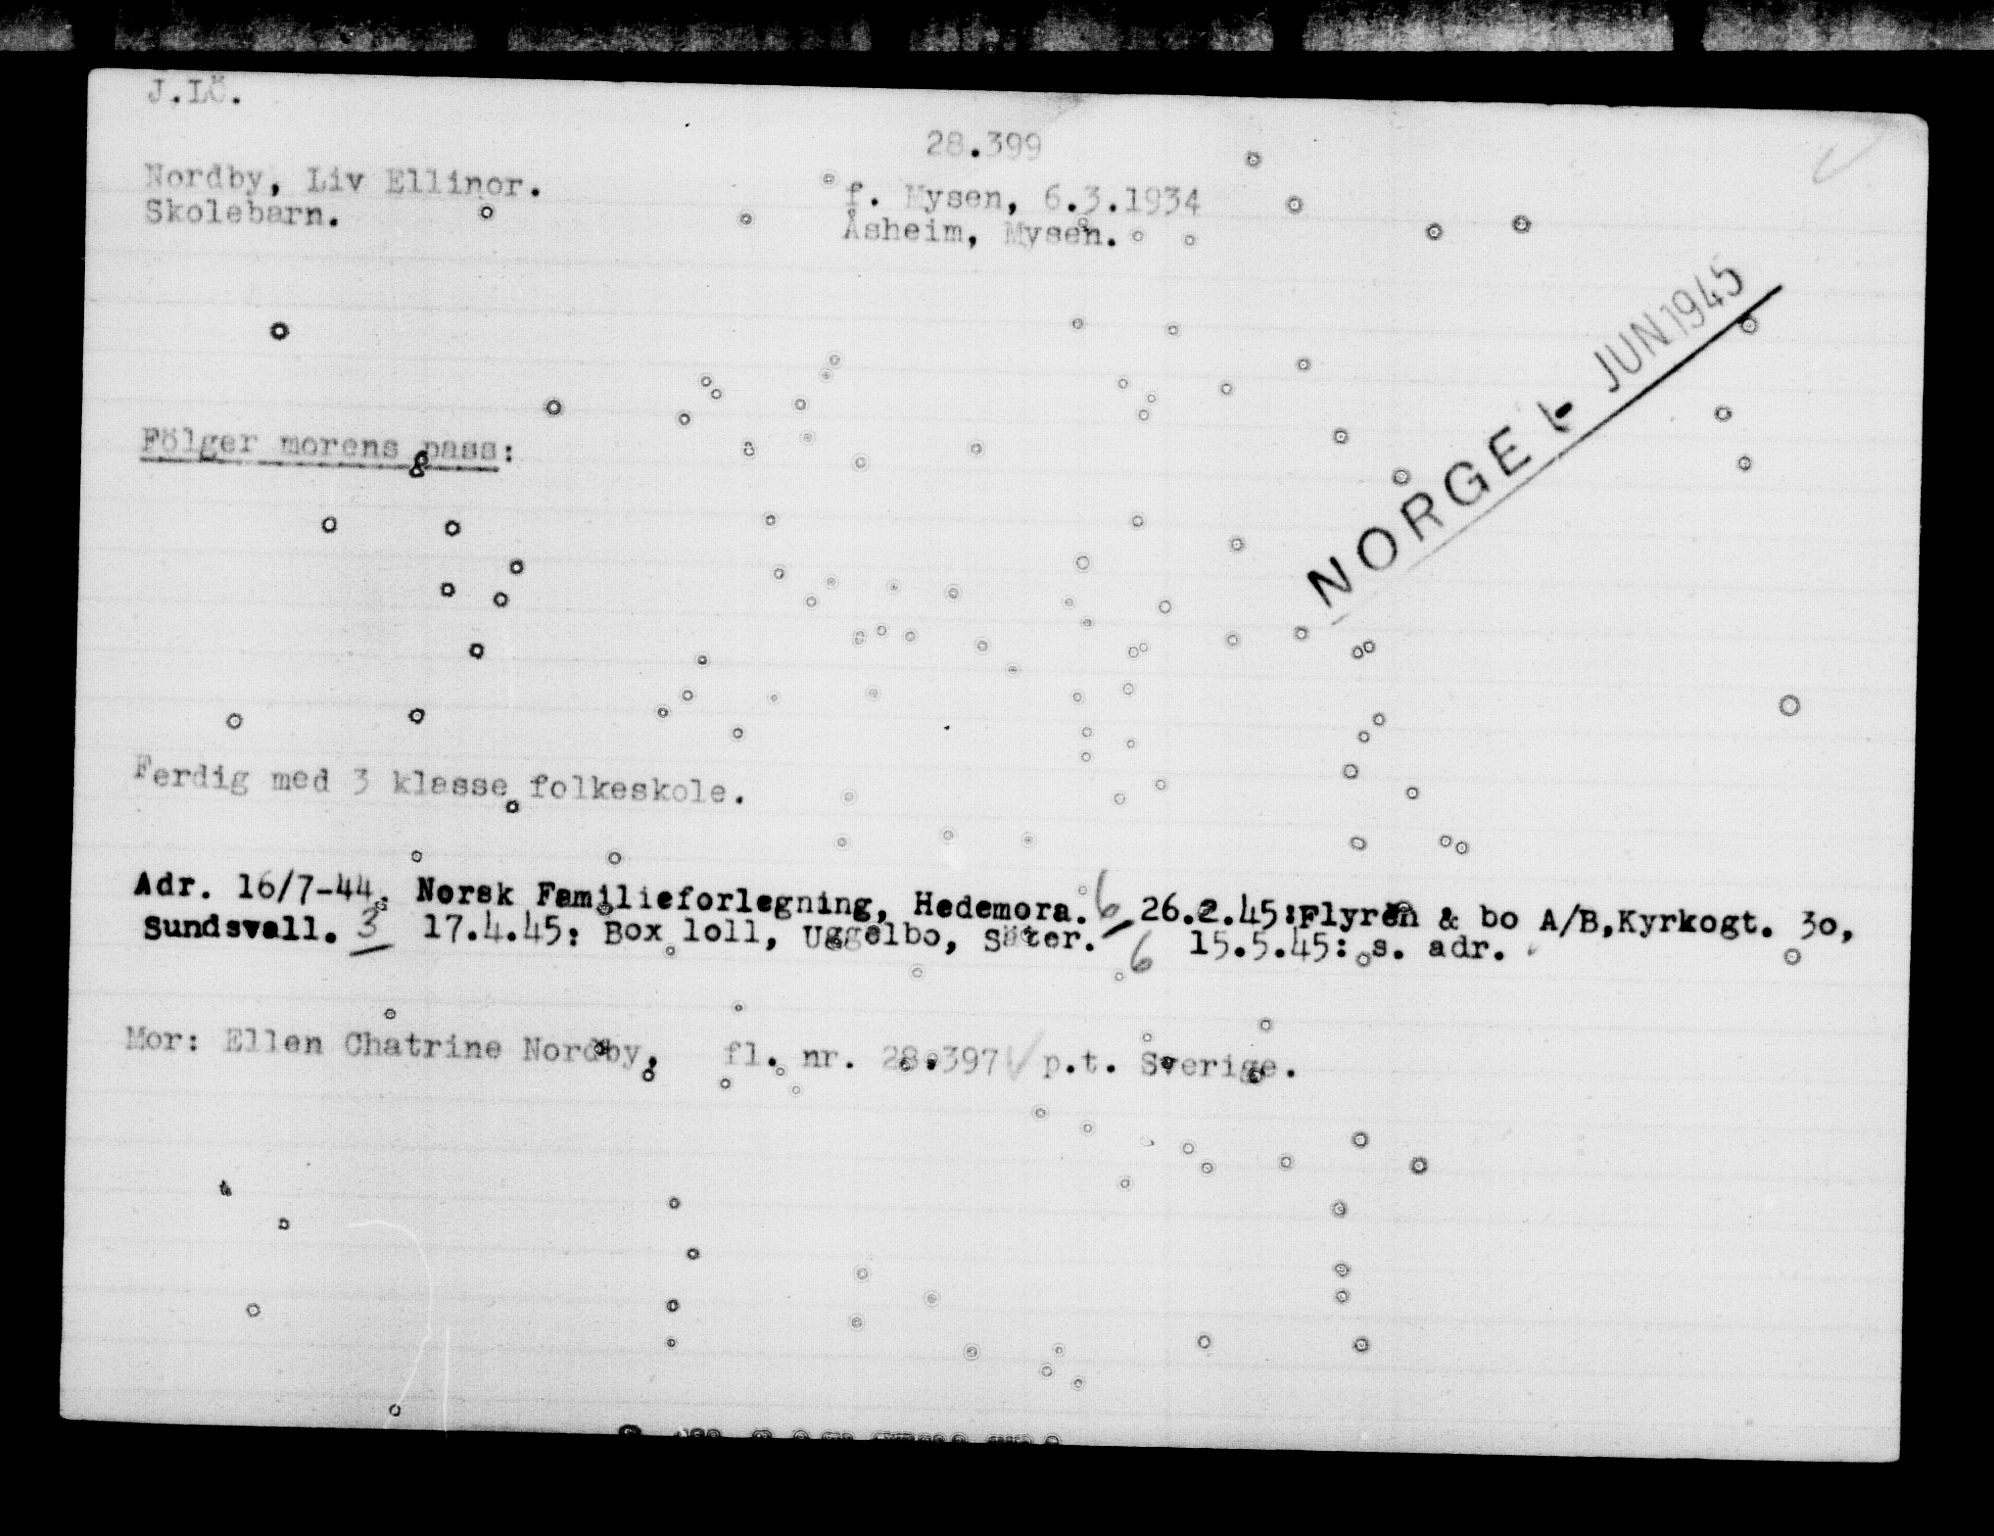 J.LÖ.
28.399
Nordby, Liv Ellinor.
f. Mysen, 6.3.1934
Skolebarn.
Åsheim, Mysen.
NORGE 1- JUN 1945
Fölger morens pass:
Ferdig med 3 klasse folkeskole.
Adr. 16/7-44. Norsk Familieforlegning, Hedemora. 6 26.2.45:Flyrén & bo A/B,Kyrkogt. 3o,
Sundsvall. 3 17.4.45: Box loll, Uggelbo, Säter. 6 15.5.45: s. adr.
Mor: Ellen Chatrine Nordby, fl. nr. 28.397 p.t. Sverige.